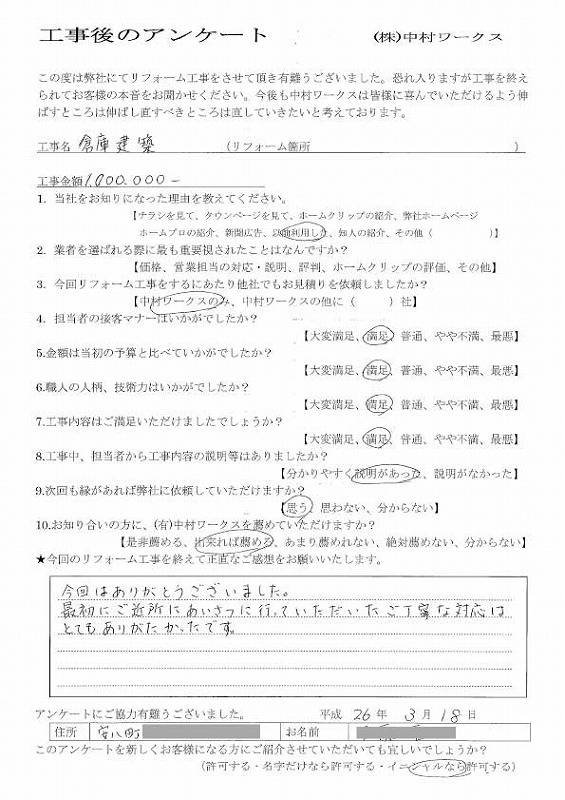 工事後のアンケート (株)中村ワークス
この度は弊社にてリフォーム工事をさせて頂き有難うございました。恐れ入りますが工事を終え
られてお客様の本音をお聞かせください。今後も中村ワークスは皆様に喜んでいただけるよう伸
ばすところは伸ばし直すべきところは直していきたいと考えております。
工事名 倉庫建築 (リフォーム箇所 )
工事金額 1,000,000-
1. 当社をお知りになった理由を教えてください。
【チラシを見て、タウンページを見て、ホームクリップの紹介、弊社ホームページ
ホームプロの紹介、新聞広告、以前利用した、知人の紹介、その他( )】
2. 業者を選ばれる際に最も重要視されたことはなんですか？
【価格、営業担当の対応・説明、評判、ホームクリップの評価、その他】
3. 今回リフォーム工事をするにあたり他社でもお見積りを依頼しましたか？
【中村ワークスのみ、中村ワークスの他に( )社】
4. 担当者の接客マナーはいかがでしたか？
【大変満足、満足、普通、やや不満、最悪】
5.金額は当初の予算と比べていかがでしたか？
【大変満足、満足、普通、やや不満、最悪】
6.職人の人柄、技術力はいかがでしたか？
【大変満足、満足、普通、やや不満、最悪】
7.工事内容はご満足いただけましたでしょうか？
【大変満足、満足、普通、やや不満、最悪】
8.工事中、担当者から工事内容の説明等はありましたか？
【分かりやすく説明があった、説明がなかった】
9.次回も縁があれば弊社に依頼していただけますか？
【思う、思わない、分からない】
10.お知り合いの方に、(有)中村ワークスを薦めていただけますか？
【是非薦める、出来れば薦める、あまり薦めれない、絶対薦めない、分からない】
★今回のリフォーム工事を終えて正直なご感想をお願いいたします。
今回はありがとうございました。
最初にご近所にあいさつに行っていただいたご丁寧な対応は
とてもありがたかったです。
アンケートにご協力有難うございました。 平成 26年 3月 18日
住所 安八町 お名前
このアンケートを新しくお客様になる方にご紹介させていただいても宜しいでしょうか？
(許可する・名字だけなら許可する・イニシャルなら許可する)